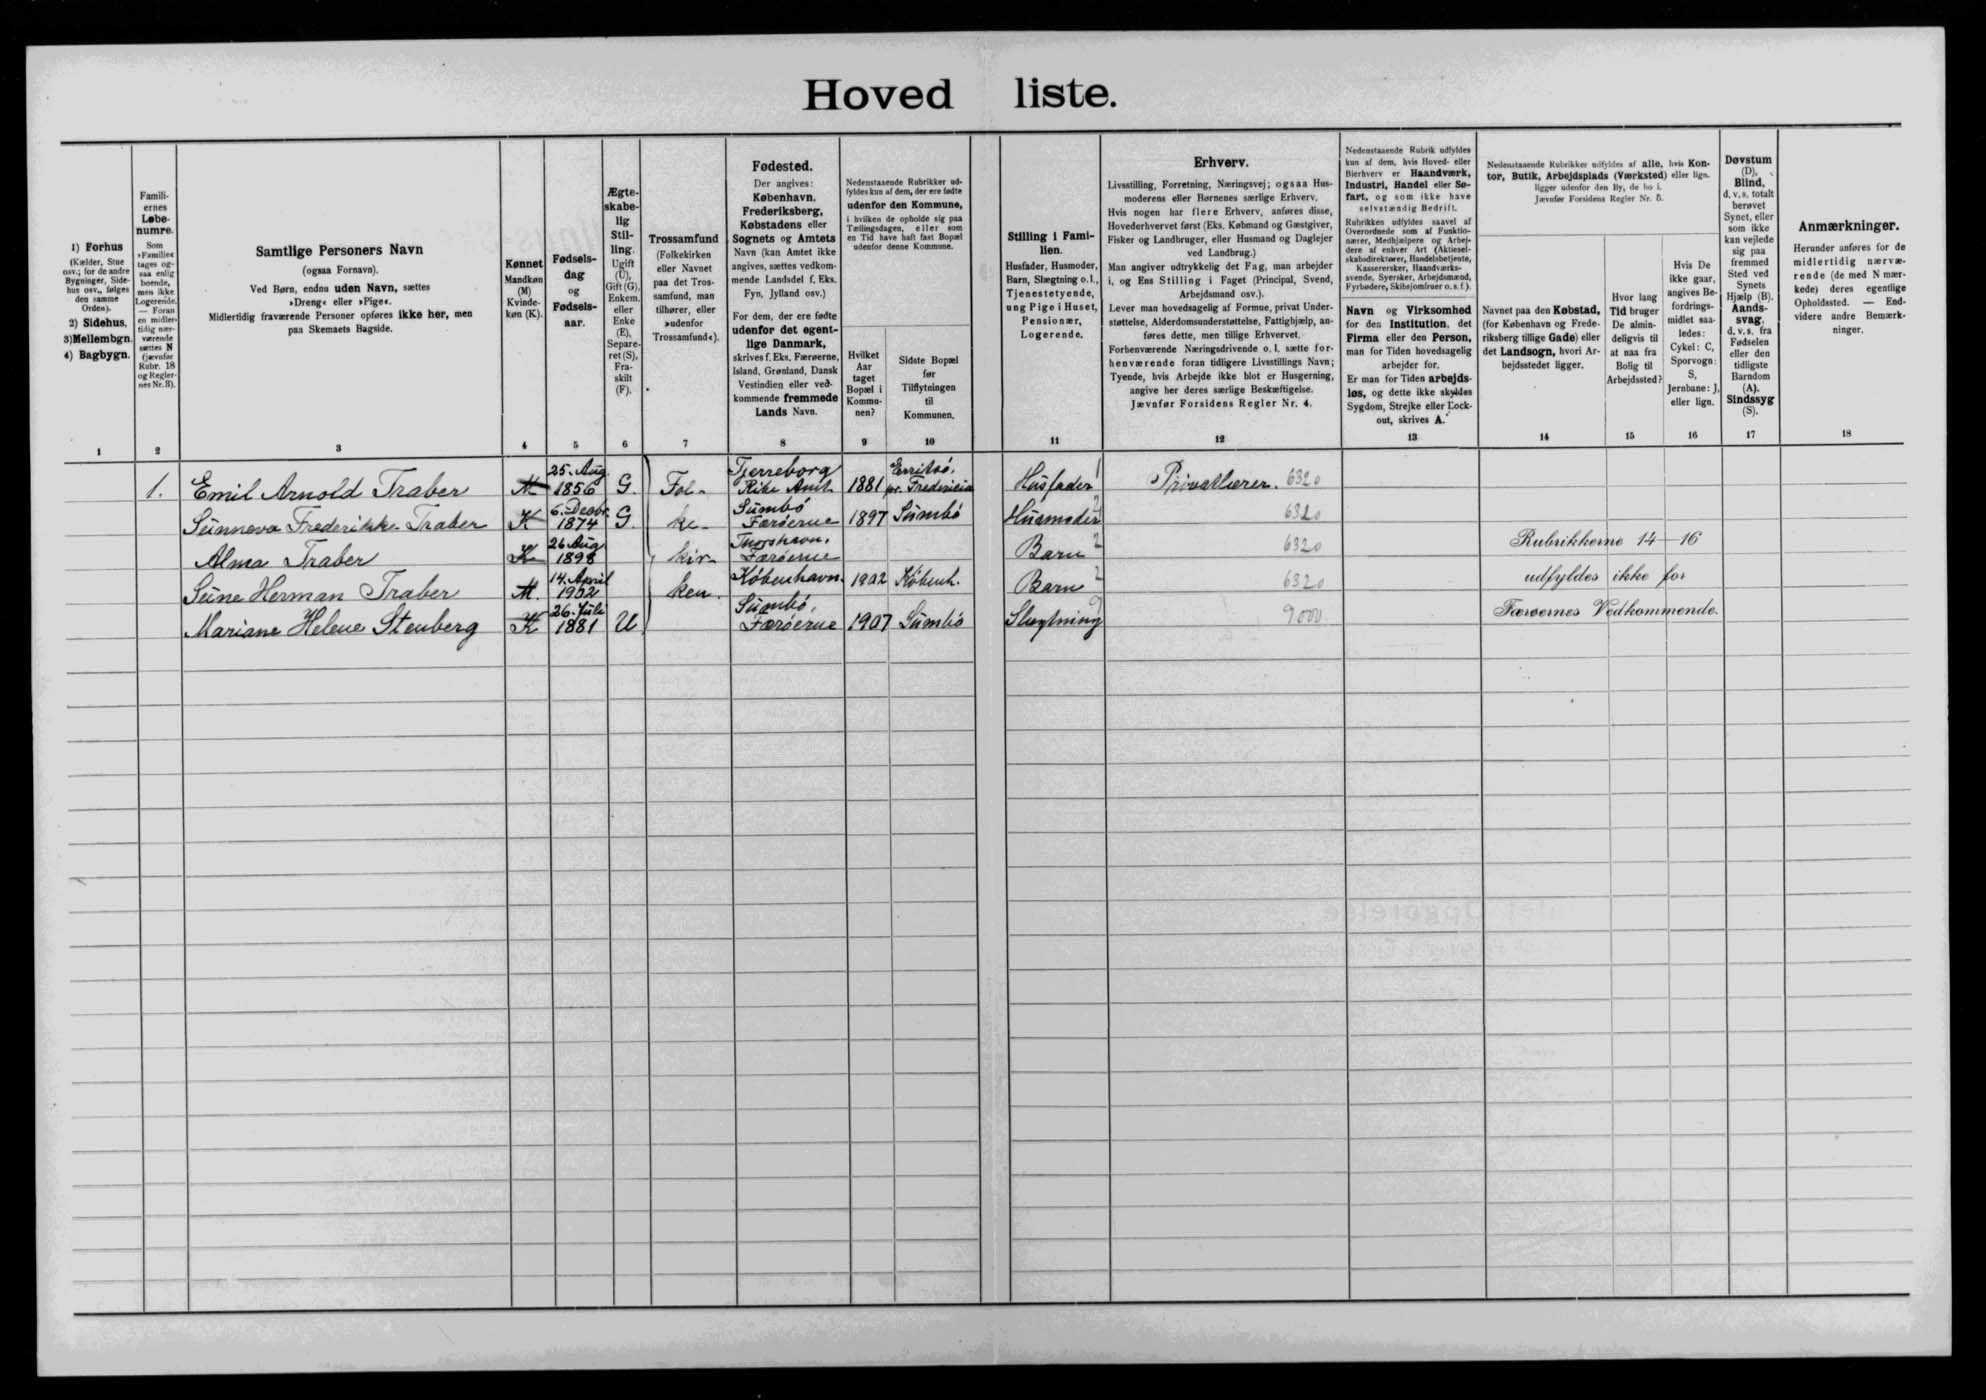 Hovedliste.
1) Forhus
(Kælder, Stue
osv.; for de andre
Bygninger, Side-
hus osv., følges
den samme
Orden).
2) Sidehus.
3) Mellembgn.
4) Bagbygn.
1
Famili-
ernes
Løbe-
numre.
Som
»Familie«
tages og-
saa enlig
boende,
men ikke
Logerende.
— Foran
en midler-
tidig nær-
værende
sættes N
(jævnfør
Rubr. 18
og Regler-
nes Nr. 3).
2
Samtlige Personers Navn
(ogsaa Fornavn).
Ved Børn, endnu uden Navn, sættes
»Dreng« eller »Pige«.
Midlertidig fraværende Personer opføres ikke her, men
paa Skemaets Bagside.
3
Kønnet
Mandkøn
(M)
Kvinde-
køn (K).
4
Fødsels-
dag
og
Fødsels-
aar.
5
Ægte-
skabe-
lig
Stil-
ling.
Ugift
(U),
Gift (G),
Enkem.
eller
Enke
(E),
Separe-
ret (S),
Fra-
skilt
(F).
6
Trossamfund
(Folkekirken
eller Navnet
paa det Tros-
samfund, man
tilhører, eller
»udenfor
Trossamfund«).
7
Fødested.
Der angives:
København,
Frederiksberg,
Købstadens eller
Sognets og Amtets
Navn (kan Amtet ikke
angives, sættes vedkom-
mende Landsdel f. Eks.
Fyn, Jylland osv.)
For dem, der ere fødte
udenfor det egent-
lige Danmark,
skrives f. Eks. Færøerne,
Island, Grønland, Dansk
Vestindien eller ved-
kommende fremmede
Lands Navn.
8
Nedenstaaende Rubrikker ud-
fyldes kun af dem, der ere fødte
udenfor den Kommune,
i hvilken de opholde sig paa
Tællingsdagen, eller som
en Tid have haft fast Bopæl
udenfor denne Kommune.
Hvilket
Aar
taget
Bopæl i
Kommu-
nen?
9
Sidste Bopæl
før
Tilflytningen
til
Kommunen.
10
Stilling i Fami-
lien.
Husfader, Husmoder,
Barn, Slægtning o.l.,
Tjenestetyende,
ung Pige i Huset,
Pensionær,
Logerende.
11
Erhverv.
Livsstilling, Forretning, Næringsvej; ogsaa Hus-
moderens eller Børnenes særlige Erhverv.
Hvis nogen har flere Erhverv, anføres disse,
Hovederhvervet først (Eks. Købmand og Gæstgiver,
Fisker og Landbruger, eller Husmand og Daglejer
ved Landbrug.)
Man angiver udtrykkelig det Fag, man arbejder
i, og Ens Stilling i Faget (Principal, Svend,
Arbejdsmand osv.).
Lever man hovedsagelig af Formue, privat Under-
støttelse, Alderdomsunderstøttelse, Fattighjælp, an-
føres dette, men tillige Erhvervet.
Forhenværende Næringsdrivende o. l. sætte for-
henværende foran tidligere Livsstillings Navn;
Tyende, hvis Arbejde ikke blot er Husgerning,
angive her deres særlige Beskæftigelse.
Jævnfør Forsidens Regler Nr. 4.
12
Nedenstaaende Rubrik udfyldes
kun af dem, hvis Hoved- eller
Bierhverv er Haandværk,
Industri, Handel eller Sø-
fart, og som ikke have
selvstændig Bedrift.
Rubrikken udfyldes saavel af
Overordnede som af Funktio-
nærer, Medhjælpere og Arbej-
dere af enhver Art (Aktiesel-
skabsdirektører, Handelsbetjente,
Kassererske, Haandværks-
svende, Syersker, Arbejdsmænd,
Fyrbødere, Skibsjomfruer o. s. f.).
Navn og Virksomhed
for den Institution, det
Firma eller den Person,
man for Tiden hovedsagelig
arbejder for.
Er man for Tiden arbejds-
løs, og dette ikke skyldes
Sygdom, Strejke eller Lock-
out, skrives A.
13
Nedenstaaende Rubrikker udfyldes af alle, hvis Kon-
tor, Butik, Arbejdsplads (Værksted) eller lign.
ligger udenfor den By, de bo i.
Jævnfør Forsidens Regler Nr. 5.
Navnet paa den Købstad,
(for København og Frede-
riksberg tillige Gade) eller
det Landsogn, hvori Ar-
bejdsstedet ligger.
14
Hvor lang
Tid bruger
De almin-
deligvis til
at naa fra
Bolig til
Arbejdssted?
15
Hvis De
ikke gaar,
angives Be-
fordrings-
midlet saa-
ledes:
Cykel: C,
Sporvogn:
S,
Jernbane: J,
eller lign.
16
Døvstum
(D),
Blind,
d. v. s. totalt
berøvet
Synet, eller
som ikke
kan vejlede
sig paa
fremmed
Sted ved
Synets
Hjælp (B).
Aands-
svag,
d. v. s. fra
Fødselen
eller den
tidligste
Barndom
(A).
Sindssyg
(S).
17
Anmærkninger.
Herunder anføres for de
midlertidig nærvæ-
rende (de med N mær-
kede) deres egentlige
Opholdssted. — End-
videre andre Bemærk-
ninger.
18
1. Emil Arnold Traber M 25. Aug. 1856 G. Fol- Tjerreborg Ribe Amt 1881 Erritsö, pr. Fredericia Husfader 1 Privatlærer. 6320
Sunneva Frederikke Traber K 6. Decbr. 1874 G. ke- Sumbö Færöerne 1897 Sumbö Husmoder 2 6320
Alma Traber K 26 Aug 1898 kir- Thorshavn, Færöerne Barn 2 6320 Rubrikkerne 14-16
Sune Herman Traber M. 14. April 1902 ken. København. 1902 Københ. Barn 2 6320 udfyldes ikke for
Mariane Helene Stenberg K 26. Juli 1881 U Sumbö, Færöerne 1907 Sumbö Slægtning 9 9000 Færøernes Vedkommende.